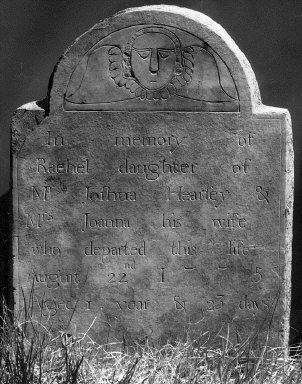 In memory of
Rachel daughter of
Mr Joſhua Hearſey &
Mrs Joanna his wife
who departed this life
Auguſt 22nd 1 5
Aged 1 year & 23 days